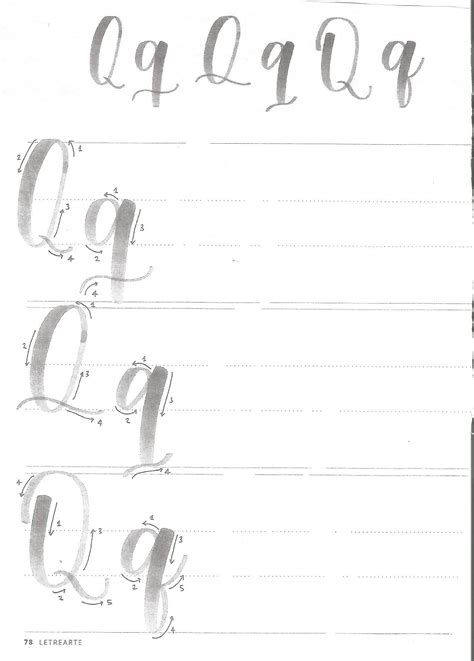 Q q Q q Q q
2 1 3 4 Q 1 3 2 4 q
2 1 3 4 Q 1 3 2 4 q
4 1 3 2 5 Q 1 3 2 5 4 q
78 LETREARTE